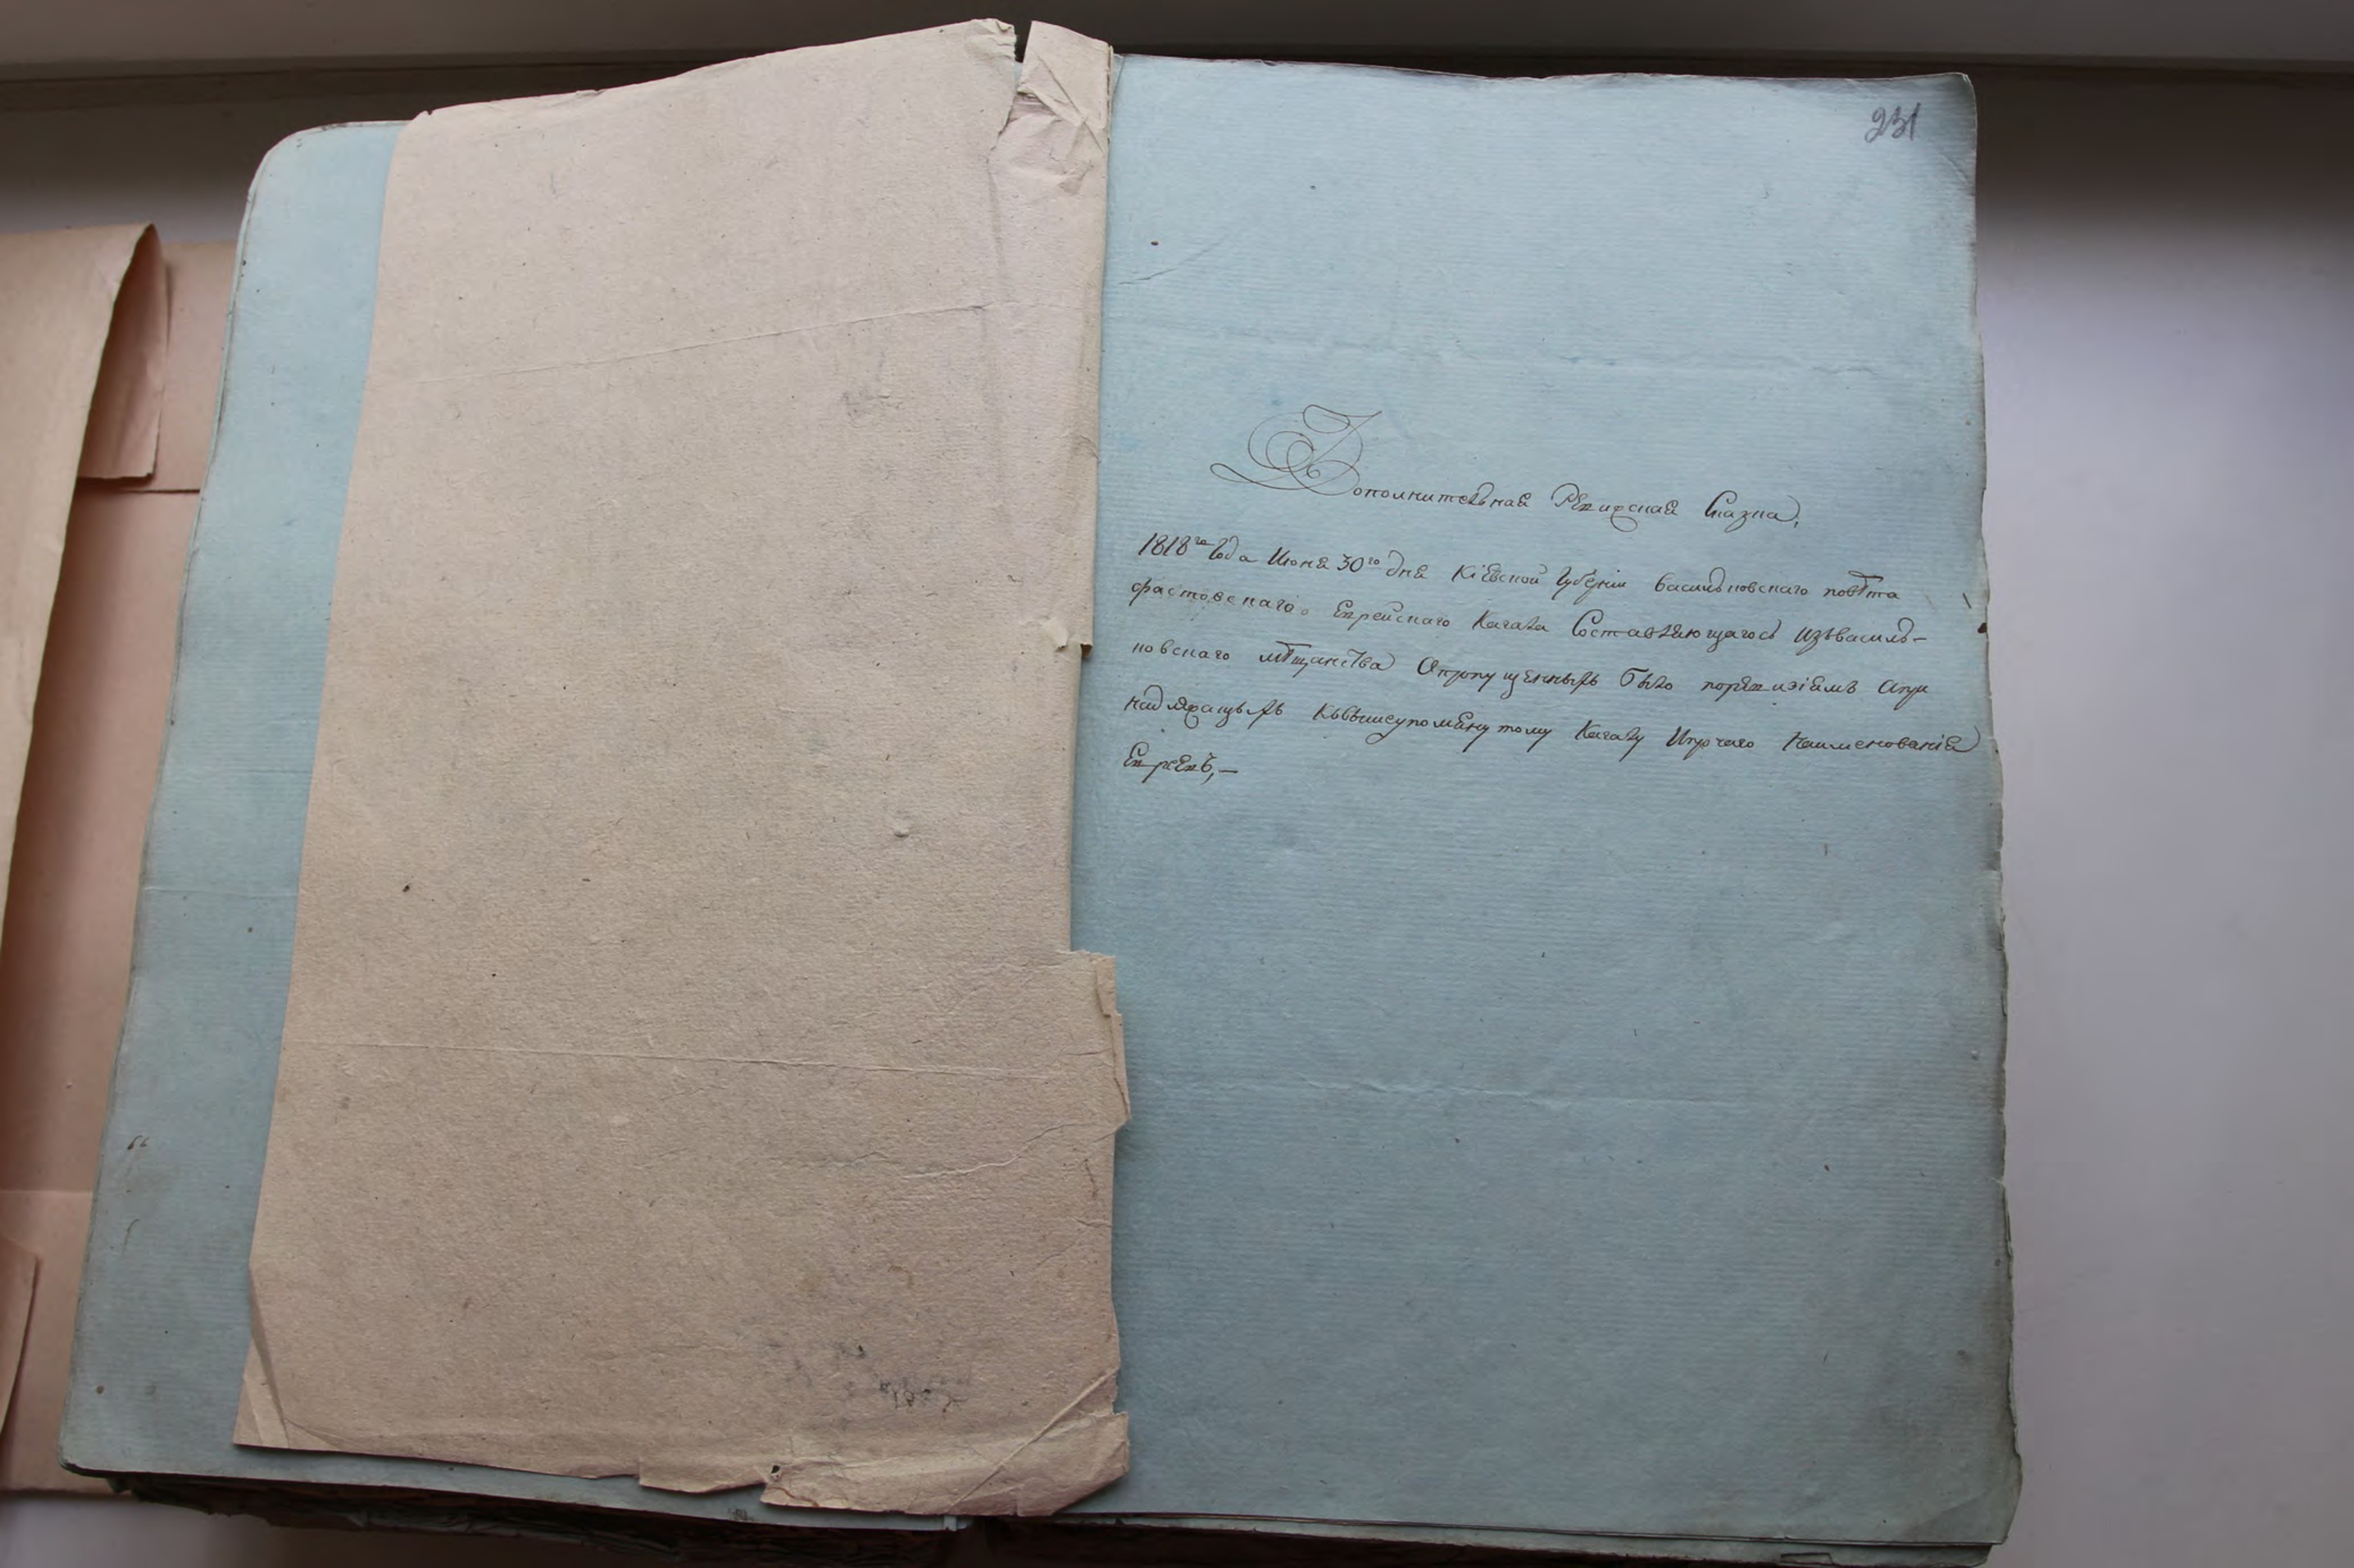 231
Дополнительная Ревижская Сказка,
1818го Года Июня 30го дня Кіевской Губерніи Васильковскаго повѣта
фастовскаго Еврейскаго Кагала Составляющагося изъ Василь-
ковскаго мѣщанства Опропущенныхъ было поревизіямъ Апри
надляжащыхъ Квышеупомянутому Кагалу Ипрочаго Наименованія
Евреевъ,—